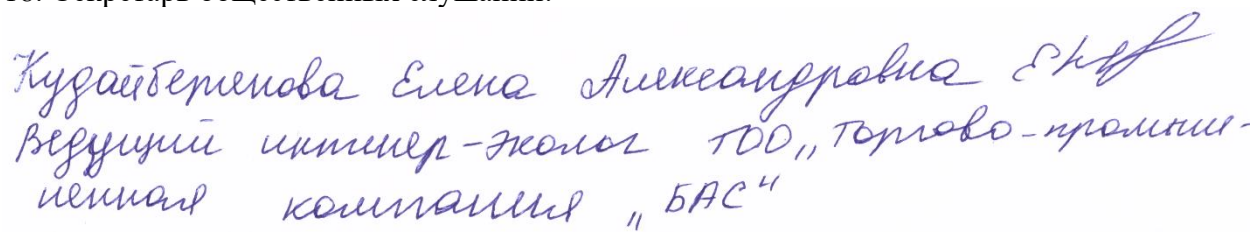 Кудайбергенова Елена Александровна
Ведущий инженер-эколог ТОО „Торгово-промышле-
ненная компания „БАС“